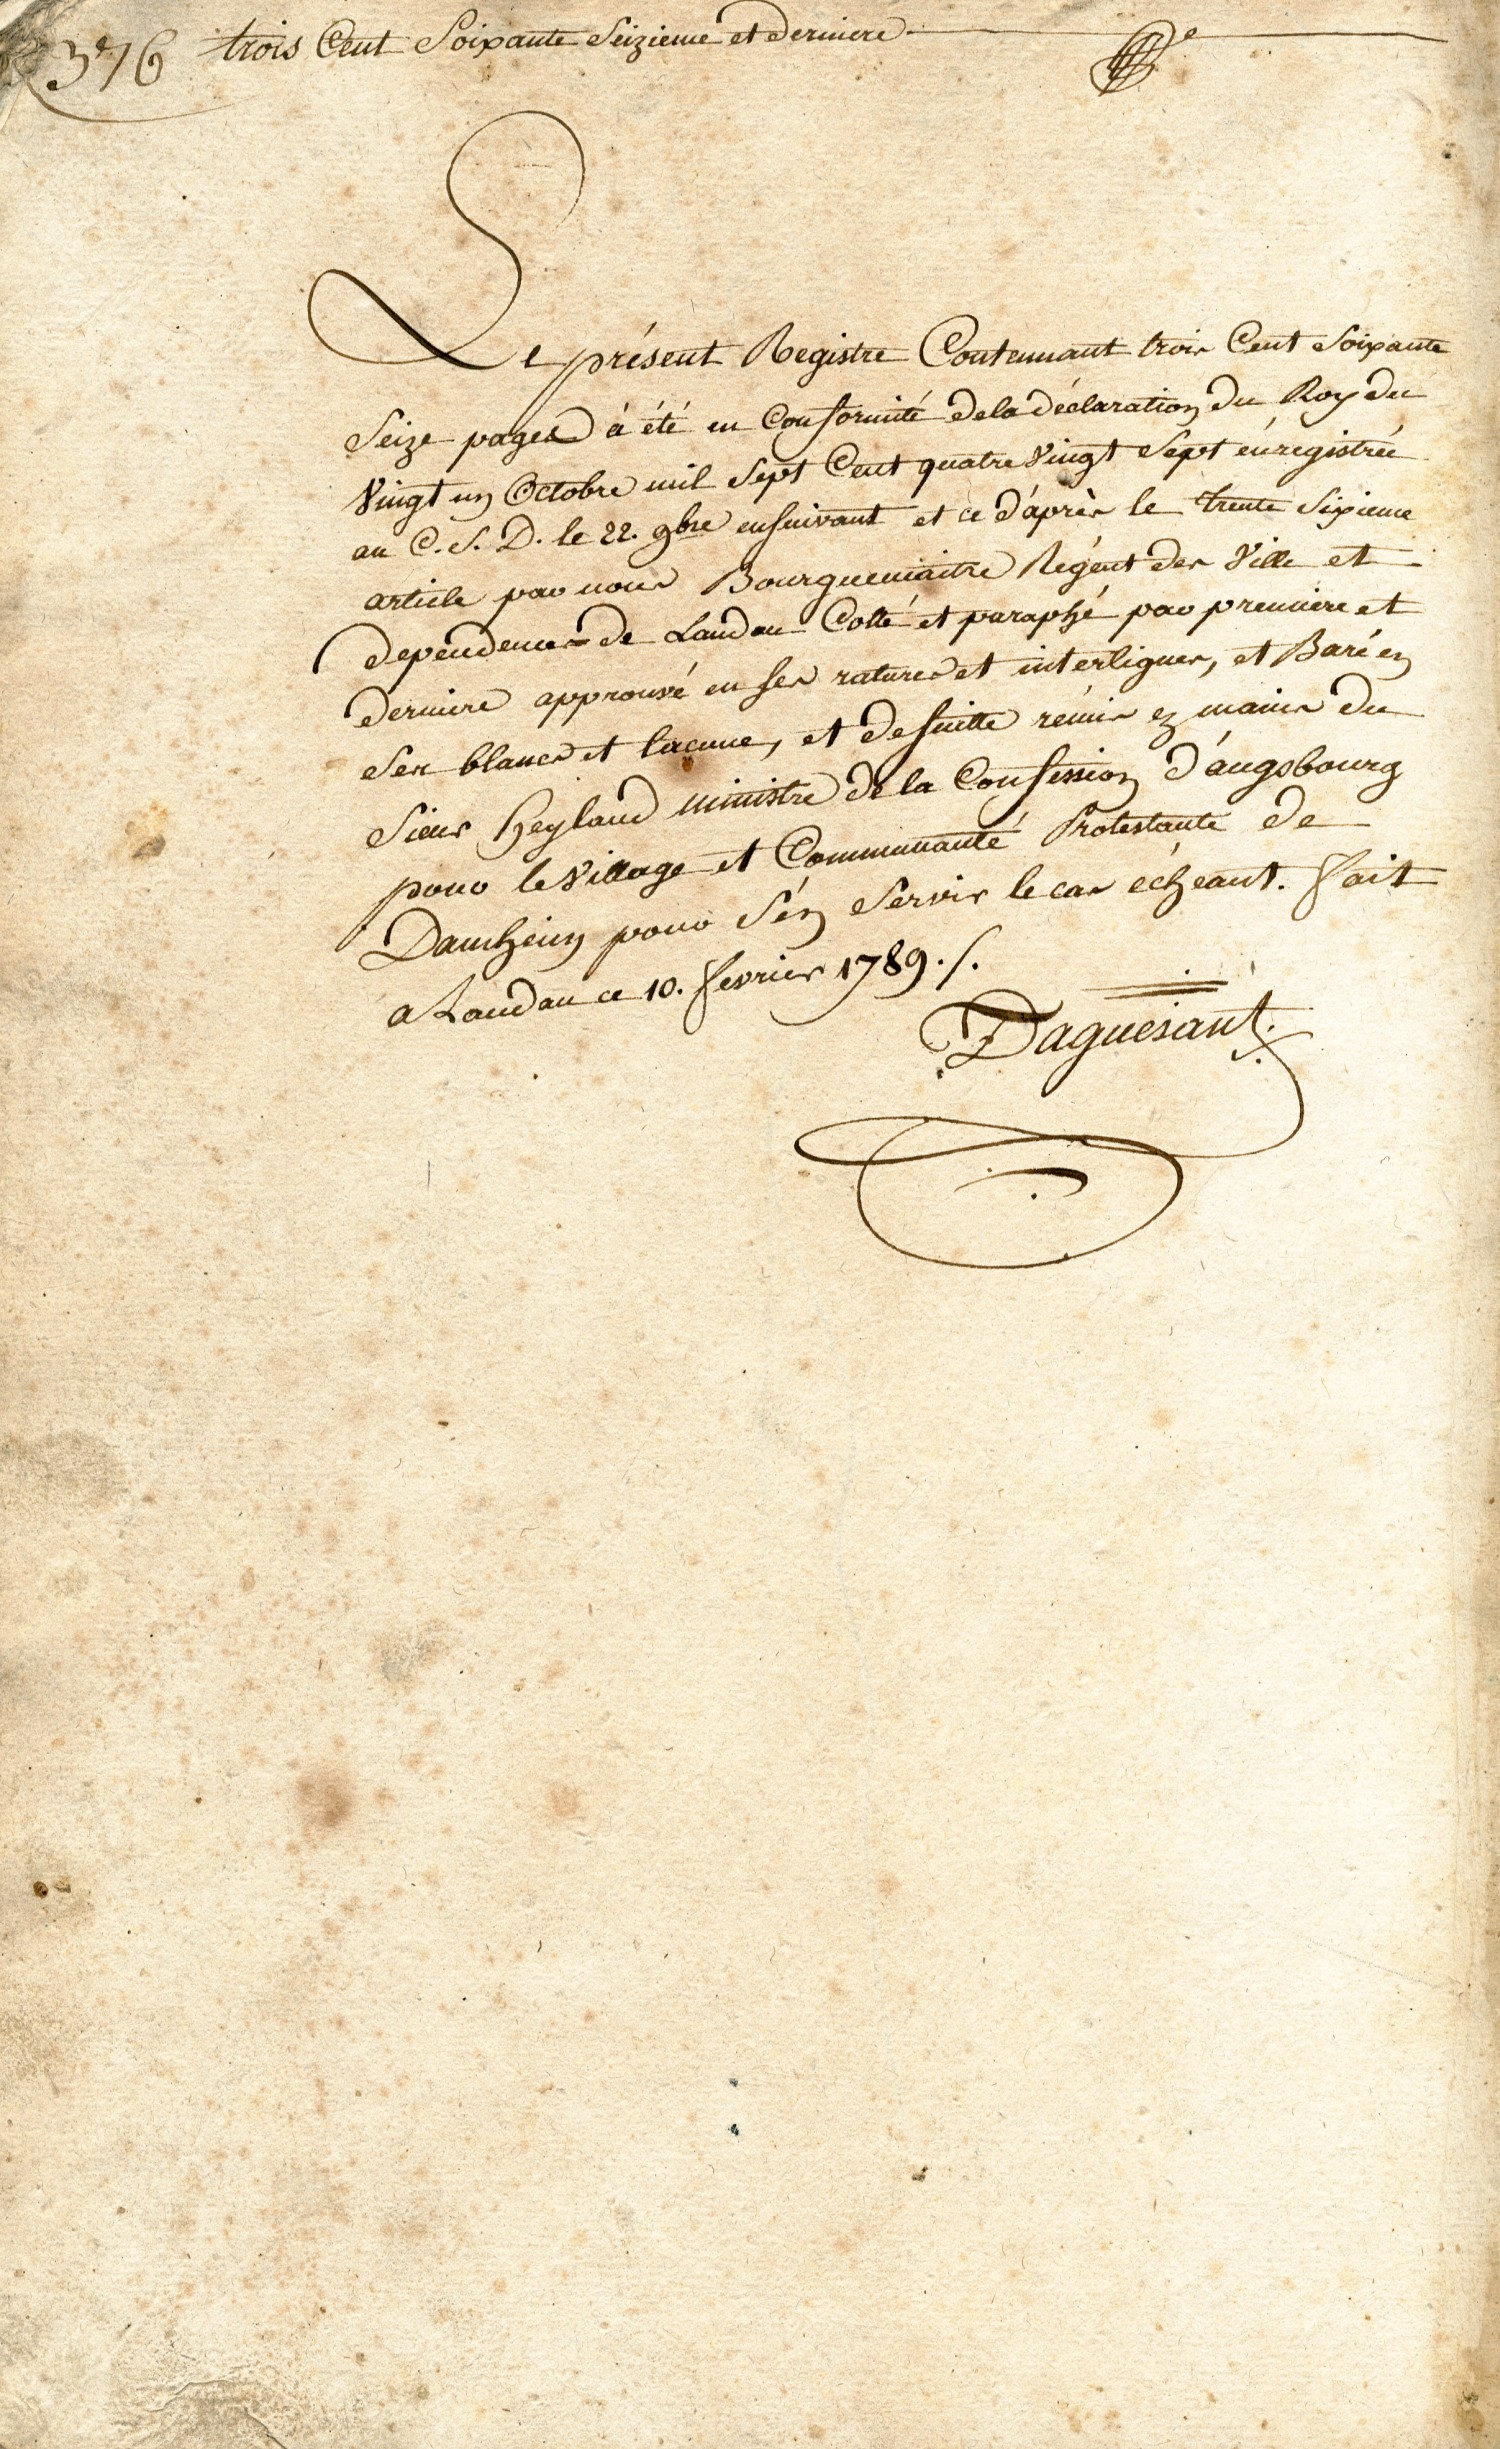 376 trois Cent Soixante Seizieme et derniere
Le présent Registre Contennant trois Cent Soixante
Seize pages à été en Conformité dela déclaration du Roy du
Vingt un Octobre mil Sept Cent quatre Vingt Sept énregistrée
au C. S. D. le 22. 9bre ensuivant et ce d'áprès le trente Sixieme
article par nous Bourguemaitre Régent des Ville et
dependences de Landau Cotté et paraphé par premiere et
derniere approuvé en ses ratures et interlignes, et Baré en
Ses blancs et lacune, et desuitte rémis ez mains du
Sieur Heyland ministre de la Confession d'áugsbourg
pour le Village et Communauté Protestante de
Damheim pour S'én Servir le cas écheant. fait
a Landau ce 10. fevrier 1789. /.
Daguesant.